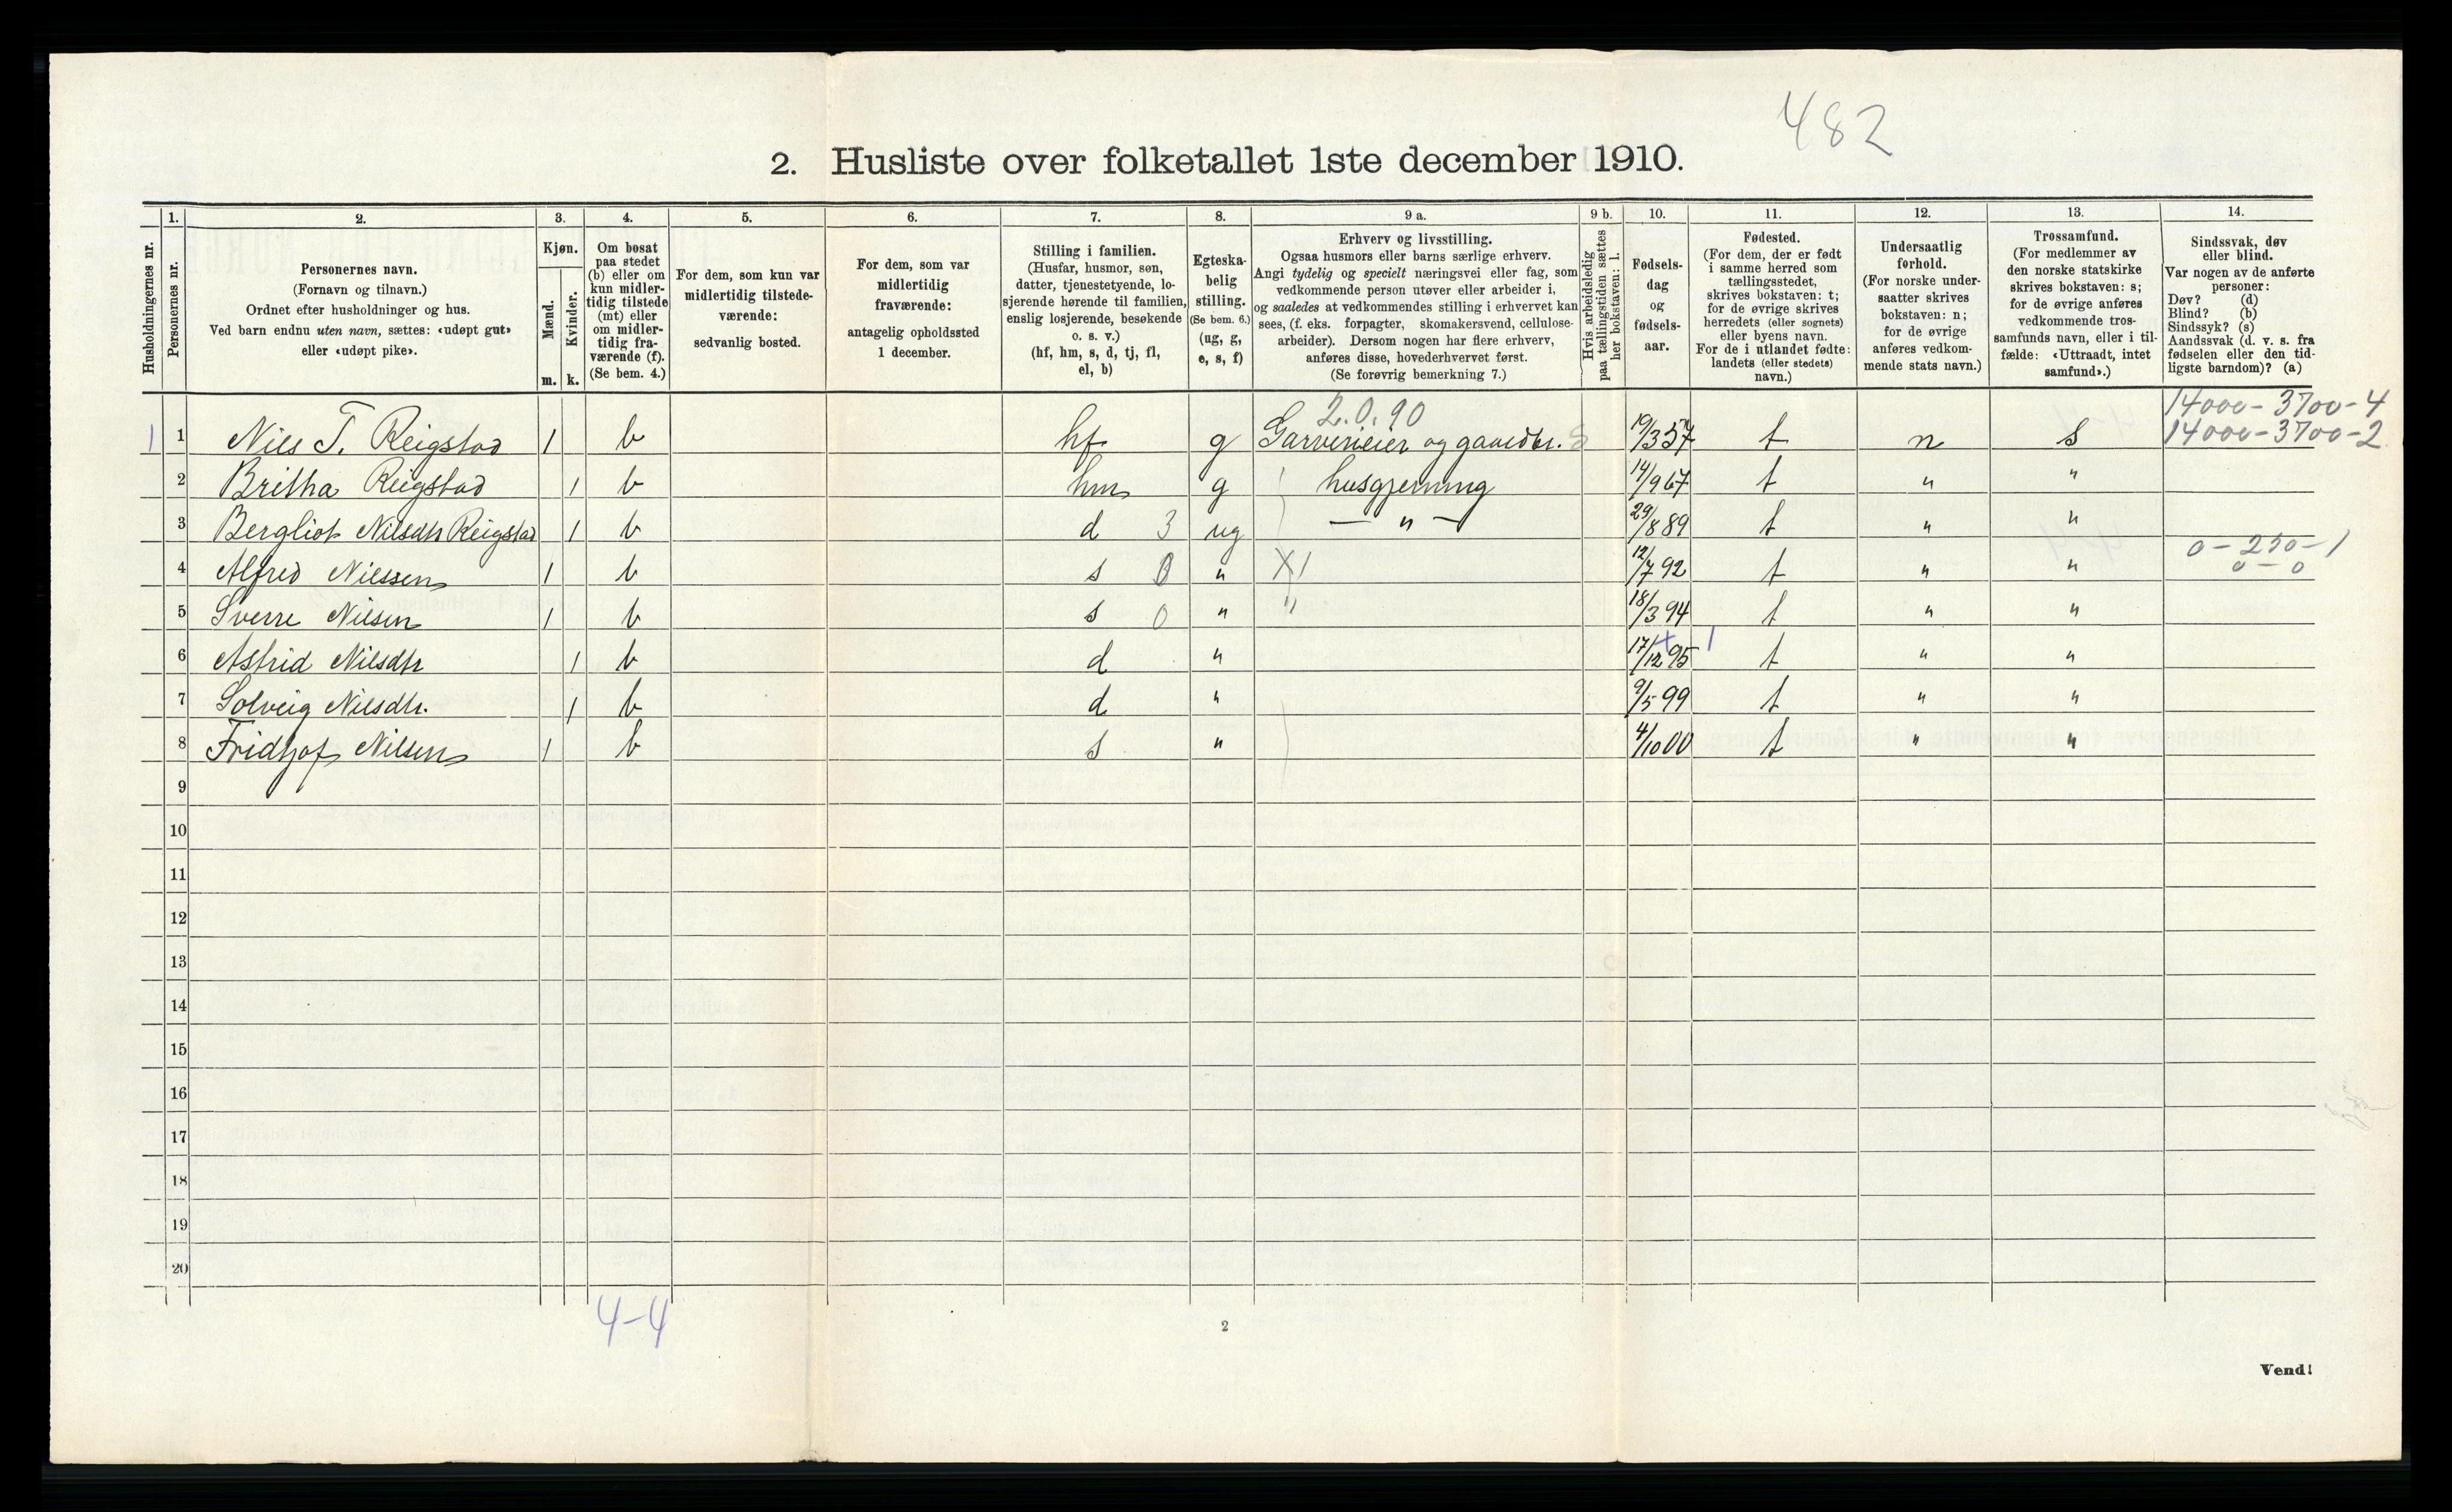 482
2. Husliste over folketallet 1ste december 1910.
Husholdningernes nr.
1.
Personernes nr.
2.
Personernes navn.
(Fornavn og tilnavn.)
Ordnet efter husholdninger og hus.
Ved barn endnu uten navn, sættes: «udøpt gut»
eller «udøpt pike».
3.
Kjøn.
Mænd.
Kvinder.
m. k.
4.
Om bosat
paa stedet
(b) eller om
kun midler-
tidig tilstede
(mt) eller
om midler-
tidig fra-
værende (f).
(Se bem. 4.)
5.
For dem, som kun var
midlertidig tilstede-
værende:
sedvanlig bosted.
6.
For dem, som var
midlertidig
fraværende:
antagelig opholdssted
1 december.
7.
Stilling i familien.
(Husfar, husmor, søn,
datter, tjenestetyende, lo-
sjerende hørende til familien,
enslig losjerende, besøkende
o. s. v.)
(hf, hm, s, d, tj, fl,
el, b)
8.
Egteska-
belig
stilling.
(Se bem. 6.)
(ug, g,
e, s, f)
9 a.
Erhverv og livsstilling.
Ogsaa husmors eller barns særlige erhverv.
Angi tydelig og specielt næringsvei eller fag, som
vedkommende person utøver eller arbeider i,
og saaledes at vedkommendes stilling i erhvervet kan
sees, (f. eks. forpagter, skomakersvend, cellulose-
arbeider). Dersom nogen har flere erhverv,
anføres disse, hovederhvervet først.
(Se forøvrig bemerkning 7.)
9 b.
Hvis arbeidsledig
paa tællingstiden sættes
her bokstaven: l.
10.
Fødsels-
dag
og
fødsels-
aar.
11.
Fødested.
(For dem, der er født
i samme herred som
tællingsstedet,
skrives bokstaven: t;
for de øvrige skrives
herredets (eller sognets)
eller byens navn.
For de i utlandet fødte:
landets (eller stedets)
navn.)
12.
Undersaatlig
forhold.
(For norske under-
saatter skrives
bokstaven: n;
for de øvrige
anføres vedkom-
mende stats navn.)
13.
Trossamfund.
(For medlemmer av
den norske statskirke
skrives bokstaven: s;
for de øvrige anføres
vedkommende tros-
samfunds navn, eller i til-
fælde: «Uttraadt, intet
samfund».)
14.
Sindssvak, døv
eller blind.
Var nogen av de anførte
personer:
Døv? (d)
Blind? (b)
Sindssyk? (s)
Aandssvak (d. v. s. fra
fødselen eller den tid-
ligste barndom)? (a)
2.0.90 14000-3700-4
1 1 Nils T. Reigstad 1 b hf g Garverieier og gaardbr. 19/3 57 t n s 14000-3700-2
2 Britha Reigstad 1 b hm g husgjerning 14/9 67 t " "
3 Bergliot Nilsdtr Reigstad 1 b d 3 ug — " — 29/8 89 t " "
4 Alfred Nilssen 1 b s 0 " X 1 12/7 92 t " " 0-250-1
0-0
5 Sverre Nilsen 1 b s 0 " " 18/3 94 t " "
6 Astrid Nilsdtr 1 b d " 17/12 95 1 t " "
7 Solveig Nilsdtr. 1 b d " 9/5 99 t " "
8 Fridtjof Nilsen 1 b s " 4/10 00 t " "
9
10
11
12
13
14
15
16
17
18
19
20
4-4
2
Vend!